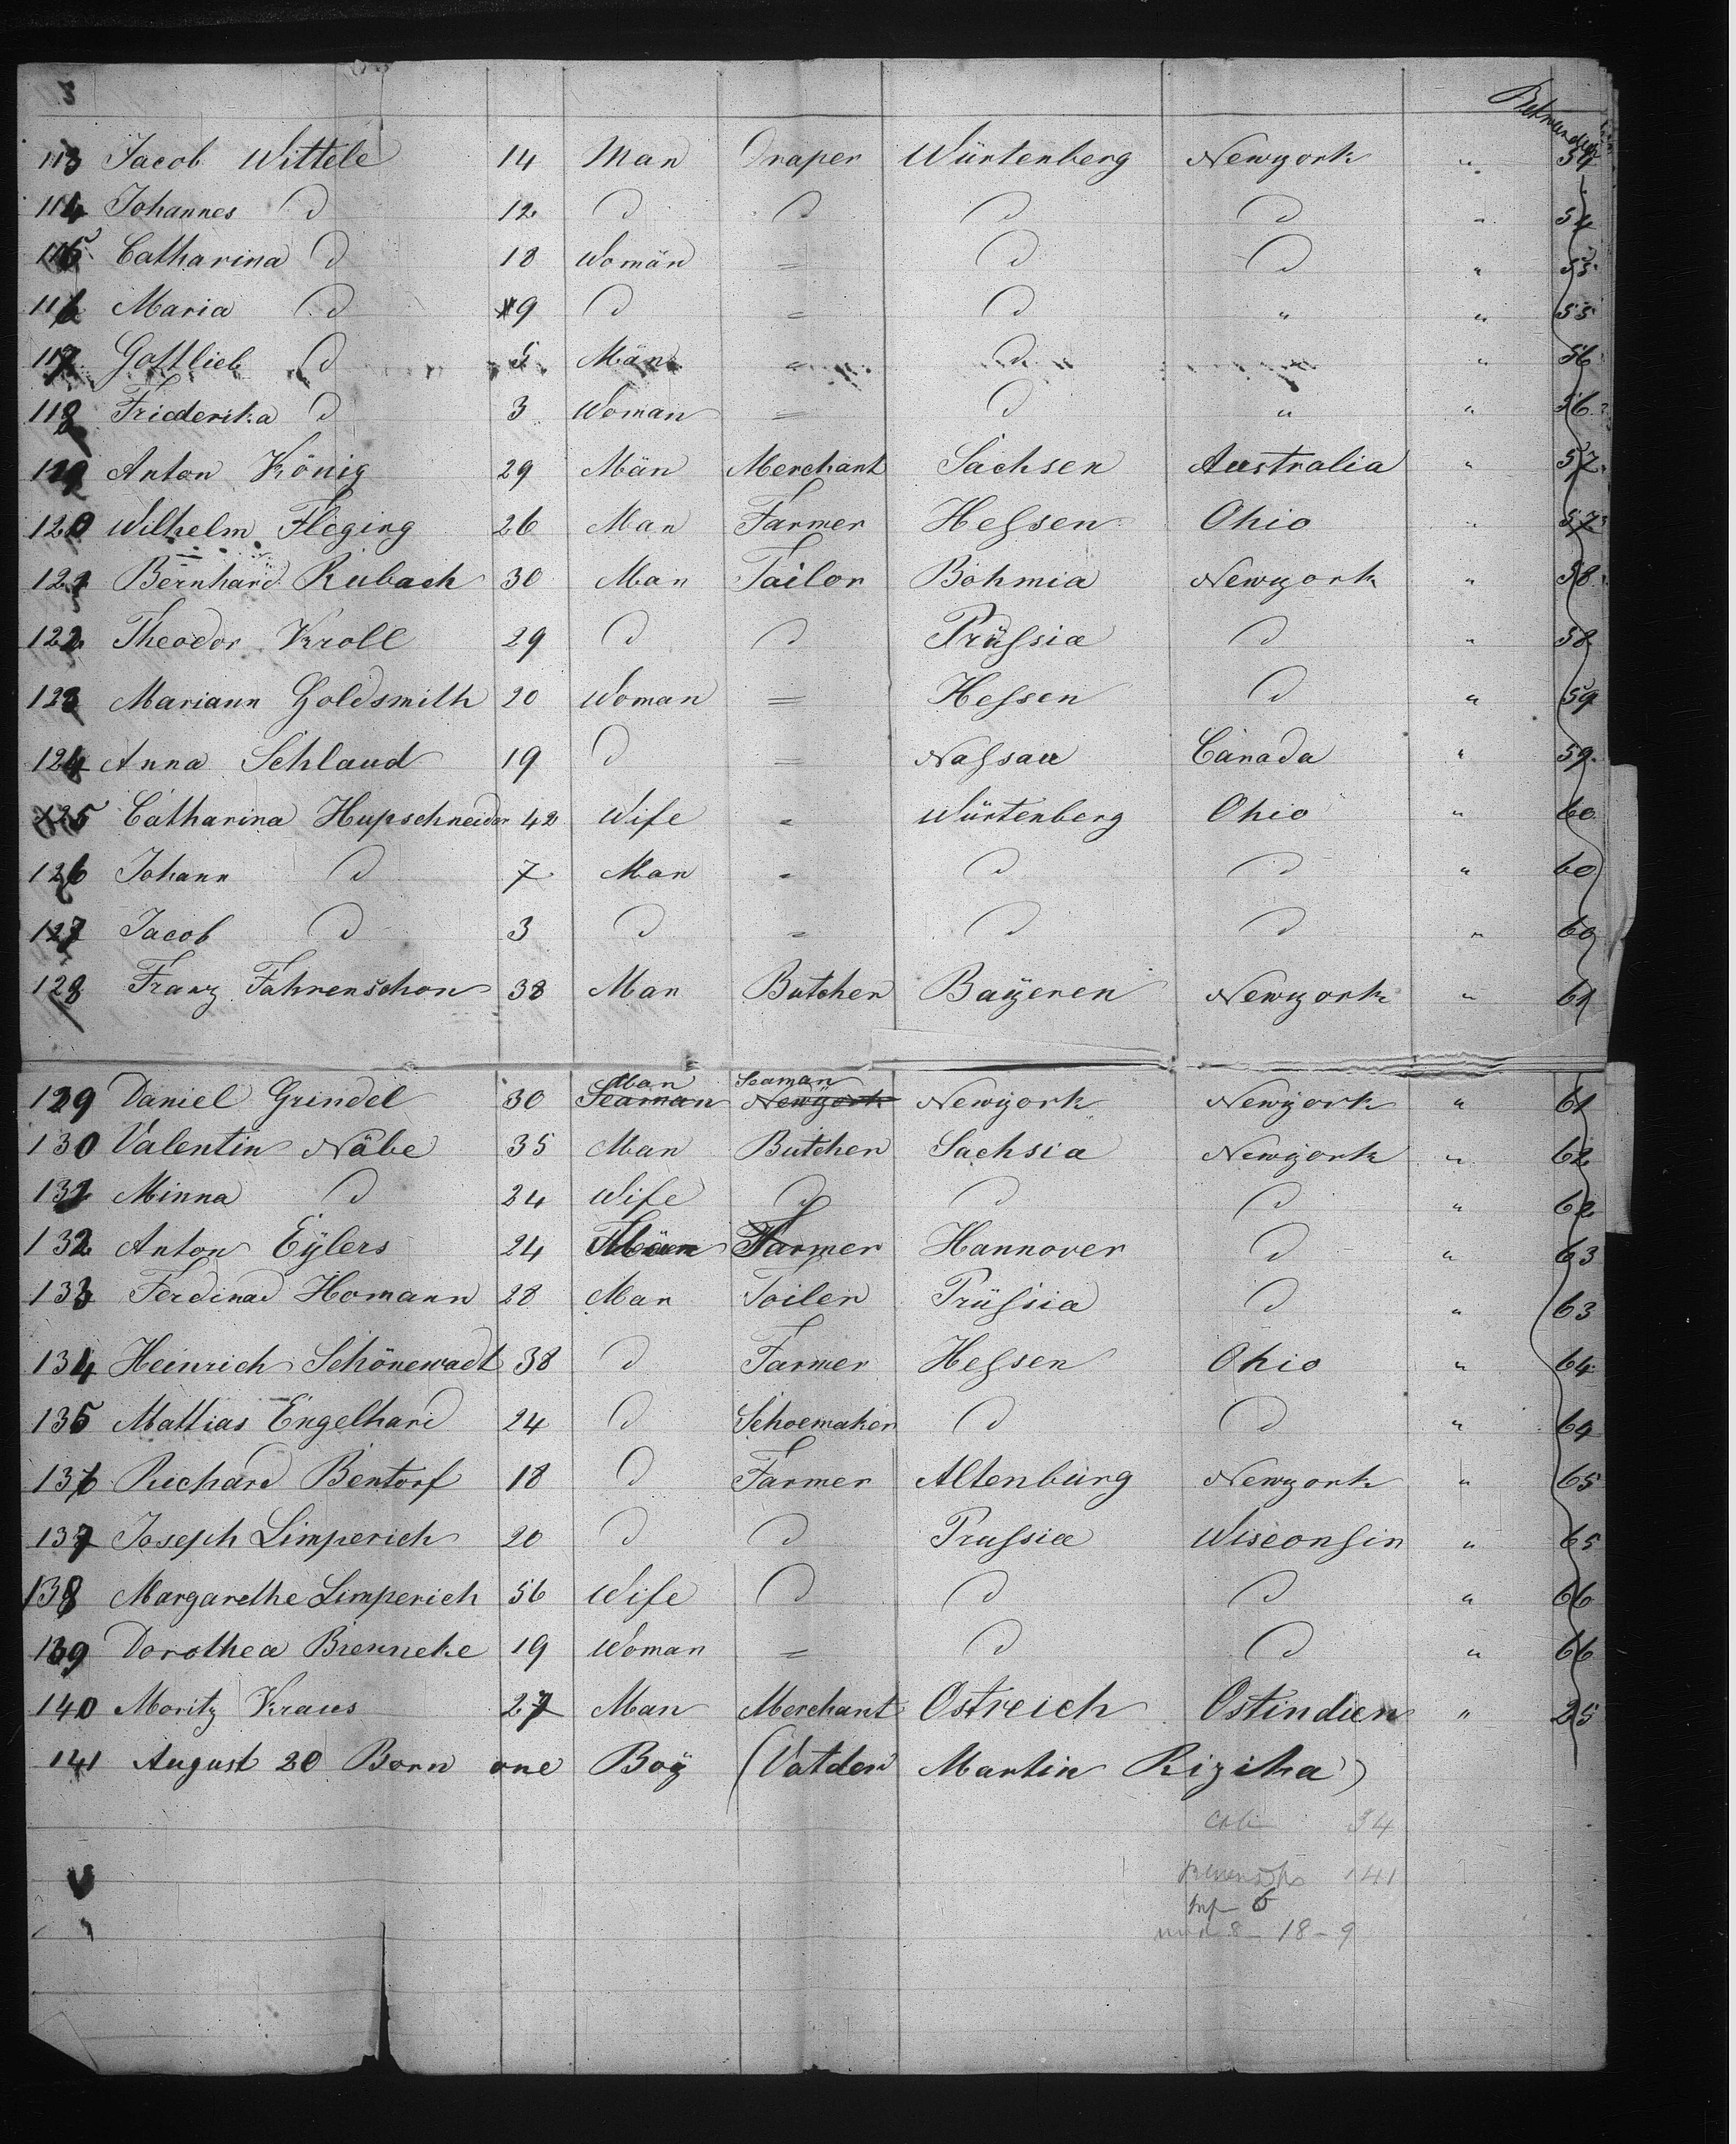 3
113 Jacob Wittele 14 Man Draper Würtenberg Newyork " 54
114 Johannes d 12 d d d d " 54
115 Catharina d 18 Womän = d d " 55
116 Maria d 9 d = d " " 55
117 Gottlieb d 5 Män " d " " 56
118 Friederika d 3 Woman = d " " 56
119 Anton König 29 Män Merchant Sachsen Australia " 57
120 Wilhelm Fleging 26 Man Farmer Heſsen Ohio " 57
121 Bernhard Rubach 30 Man Tailor Bohmia Newyork " 58
122 Theodor Kroll 29 d d Prüſsia d " 58
123 Mariann Goldsmith 20 Woman = Heſsen d " 59
124 Anna Schlaud 19 d = Naſsau Canada " 59
125 Catharina Hupschneider 42 Wife = Würtenberg Ohio " 60
126 Johann d 7 Man = d d " 60
127 Jacob d 3 d = d d " 60
128 Franz Fahrenschon 38 Man Butcher Baÿeren Newyork " 61
129 Daniel Grindel 30 Seaman Man Newÿork Seaman Newÿork Newÿork " 61
130 Valentin Näbe 35 Man Butcher Sachsia Newÿork " 62
131 Minna d 24 Wife d d d " 62
132 Anton Eÿlers 24 Män Farmer Hannover d " 63
133 Ferdinad Homann 28 Man Toiler Prüſsia d " 63
134 Heinrich Schönewadt 38 d Farmer Heſsen Ohio " 64
135 Mattias Engelhard 24 d Schoemaker d d " 64
136 Richard Bentorf 18 d Farmer Altenburg Newyork " 65
137 Joseph Limperich 20 d d Pruſsia Wisconſin " 65
138 Margarethe Limperich 56 Wife d d d " 66
139 Dorothea Brenneke 19 Woman = d d " 66
140 Moritz Kraus 27 Man Merchant Ostreich Ostindien " 25
141 August 20 Born one Boÿ (Vatder Martin Rizika)
Cab 34
141
Inf 6
und 8 - 18 - 9